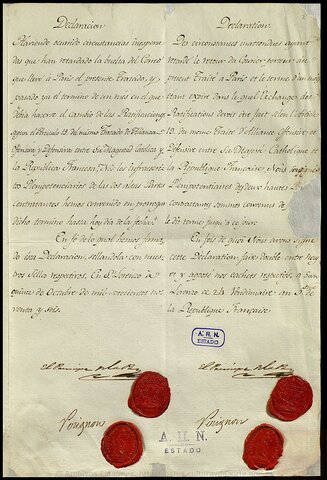 Declaracion
Haviendo ocurrido circustancias inespera-
das que han retardado la buelta del Correo
que llevó à Paris el presente Tratado, y
pasado ya el termino de un mes en el que
debia hacerse el cambio de las Ratificaciones
segun el Articulo 19. del mismo Tratado de Alianza
Ofensiva y Defensiva entre Su Magestad Catolica y
la Republica Francesa, Nos los infrascritos
Plenipotenciarios de las dos altas Partes
contratantes hemos convenido en prorogar
dicho termino hasta hoy dia de la fecha.
En fé de lo qual hemos firma-
do esta Declaracion, sellandola con nues-
tros Sellos respectivos. En Sn. Lorenzo à
quince de Octubre de mil setecientos no-
venta y seis.
El Principe de la Paz
Perignon
Declaration.
Des circonstances inattendues ayant
retardé le retour du Courrier, porteur du
présent Traité à Paris, et le terme d'un mois
étant expiré dans le quel l'échange des
Ratifications devoit être fait selon l'Article
19. du même Traité d'Alliance Offensive et
Défensive entre Sa Majesté Catholique et
la République Française, Nous soussignés
Plenipotentiaires des deux hautes Parties
contractantes sommes convenus de
proroger
le dit terme jusqu'à ce jour.
En foi de quoi Nous avons signé
cette Declaration faite double entre nous
et y apposé nos cachets respectifs, à San
Lorenzo ce 24 Vendimaire an 5me de
la République Française.
A. H. N.
ESTADO
El Principe de la Paz
Perignon
A. H. N.
ESTADO